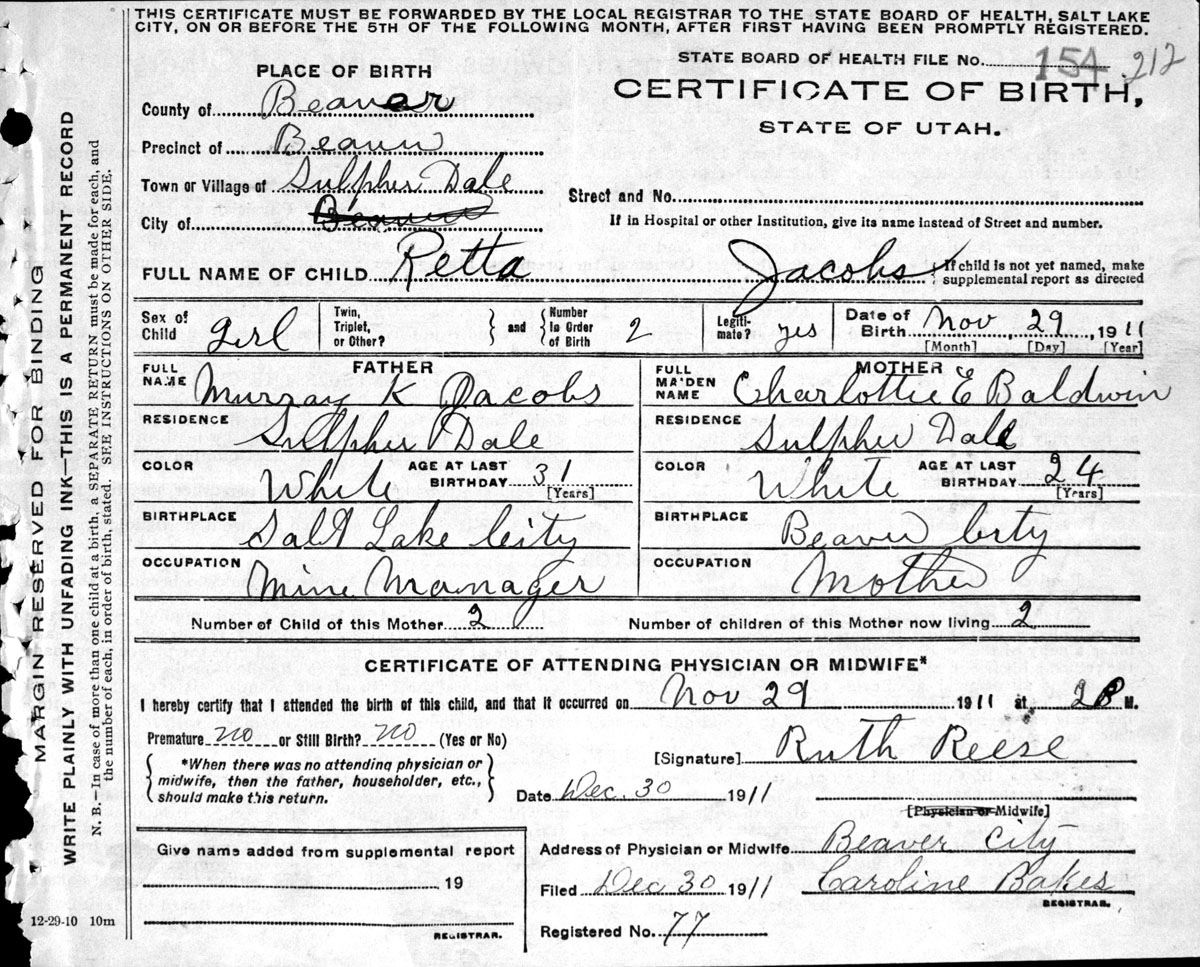 THIS CERTIFICATE MUST BE FORWARDED BY THE LOCAL REGISTRAR TO THE STATE BOARD OF HEALTH, SALT LAKE
CITY, ON OR BEFORE THE 5TH OF THE FOLLOWING MONTH, AFTER FIRST HAVING BEEN PROMPTLY REGISTERED.
STATE BOARD OF HEALTH FILE No. 154 212
PLACE OF BIRTH
CERTIFICATE OF BIRTH,
STATE OF UTAH.
County of Beaver
Precinct of Beaver
Town or Village of Sulpher Dale
Street and No.
City of Beaver
If in Hospital or other Institution, give its name instead of Street and number.
FULL NAME OF CHILD Retta Jacobs { If child is not yet named, make
supplemental report as directed
Sex of Child girl Twin, Triplet, or Other? } and { Number In Order of Birth 2 Legiti-mate? yes Date of Birth Nov 29 1911
[Month] [Day] [Year]
FATHER MOTHER
FULL NAME Murray K Jacobs FULL MAIDEN NAME Charlottie E Baldwin
RESIDENCE Sulpher Dale RESIDENCE Sulpher Dale
COLOR White AGE AT LAST BIRTHDAY 31 [Years] COLOR White AGE AT LAST BIRTHDAY 24 [Years]
BIRTHPLACE Salt Lake City BIRTHPLACE Beaver City
OCCUPATION Mine Manager OCCUPATION Mother
Number of Child of this Mother 2 Number of children of this Mother now living 2
CERTIFICATE OF ATTENDING PHYSICIAN OR MIDWIFE*
I hereby certify that I attended the birth of this child, and that it occurred on Nov 29 1911 at 2 P M.
Premature no or Still Birth? no (Yes or No)
[Signature] Ruth Reese
{ *When there was no attending physician or
midwife, then the father, householder, etc.,
should make this return. }
Date Dec. 30 1911
[Physician or Midwife]
Give name added from supplemental report
Address of Physician or Midwife Beaver City
19
Filed Dec 30 1911 Caroline Bakes
REGISTRAR.
Registered No. 77
REGISTRAR.
12-29-10 10m
MARGIN RESERVED FOR BINDING
WRITE PLAINLY WITH UNFADING INK—THIS IS A PERMANENT RECORD
N. B.—In case of more than one child at a birth, a SEPARATE RETURN must be made for each, and
the number of each, in order of birth, stated. SEE INSTRUCTIONS ON OTHER SIDE.